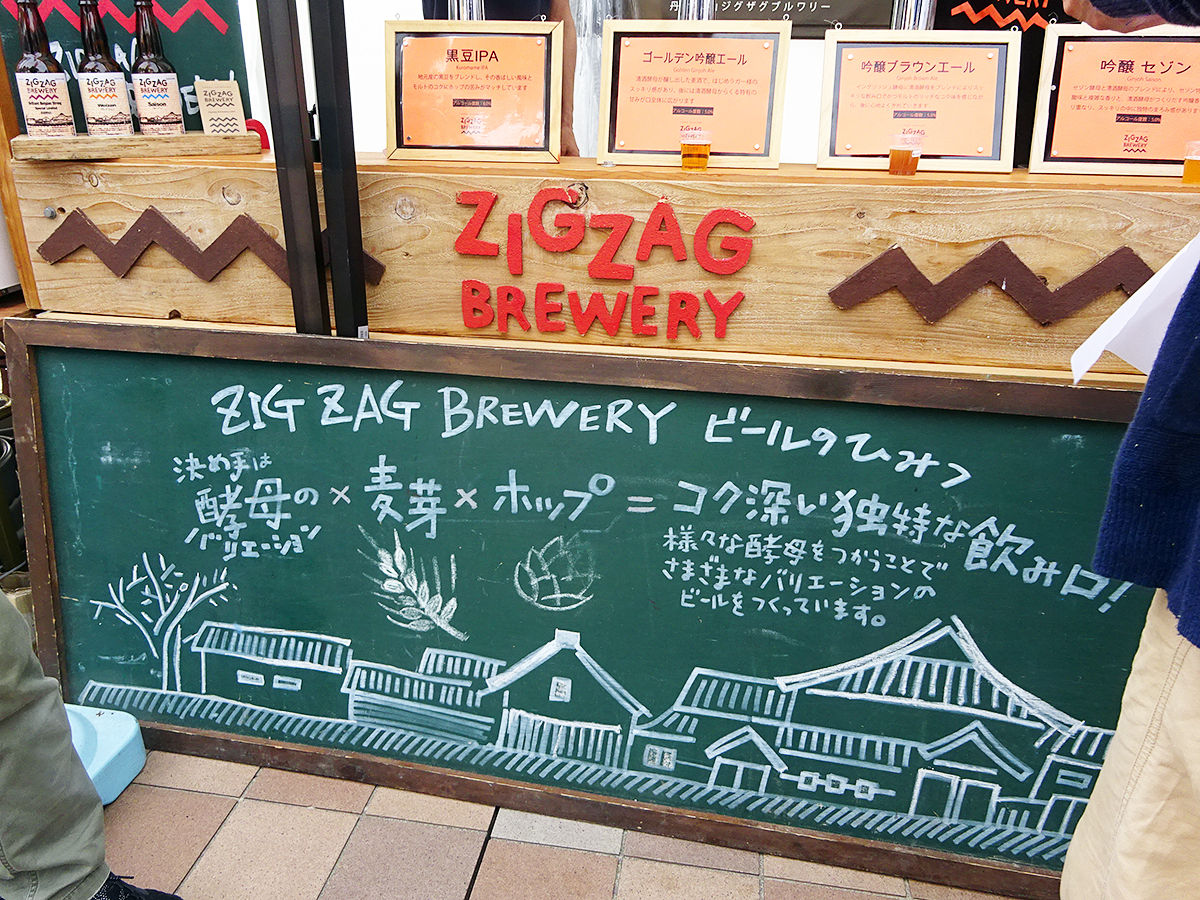 丹
ジグザグブルワリー
BREWERY
ZIGZAG
BREWERY
ZIGZAG
BREWERY
Weizen
ZIGZAG
BREWERY
Saison
ZIGZAG
BREWERY
黒豆IPA
Kuromame IPA
地元産の黒豆をブレンドし、その香ばしい風味と
モルトのコクにホップの苦みがマッチしています
アルコール度数
ZIGZAG
BREWERY
ゴールデン吟醸エール
Golden Ginjoh Ale
清酒酵母が醸し出した麦酒で、はじめラガー様の
スッキリ感があり、後には清酒酵母からくる特有の
甘みが口全体に広がります
アルコール度数：5.0%
ZIGZAG
吟醸ブラウンエール
Ginjoh Brown Ale
アルコール度数：5.0%
ZIGZAG
吟醸 セゾン
Ginjoh Saison
アルコール度数：5.0%
ZIGZAG
BREWERY
ZIGZAG
BREWERY
ZIGZAG BREWERY ビールのひみつ
決め手は
酵母の×麦芽×ホップ=コク深い独特な飲み口!
バリエーション
様々な酵母をつかうことで
さまざまなバリエーションの
ビールをつくっています。